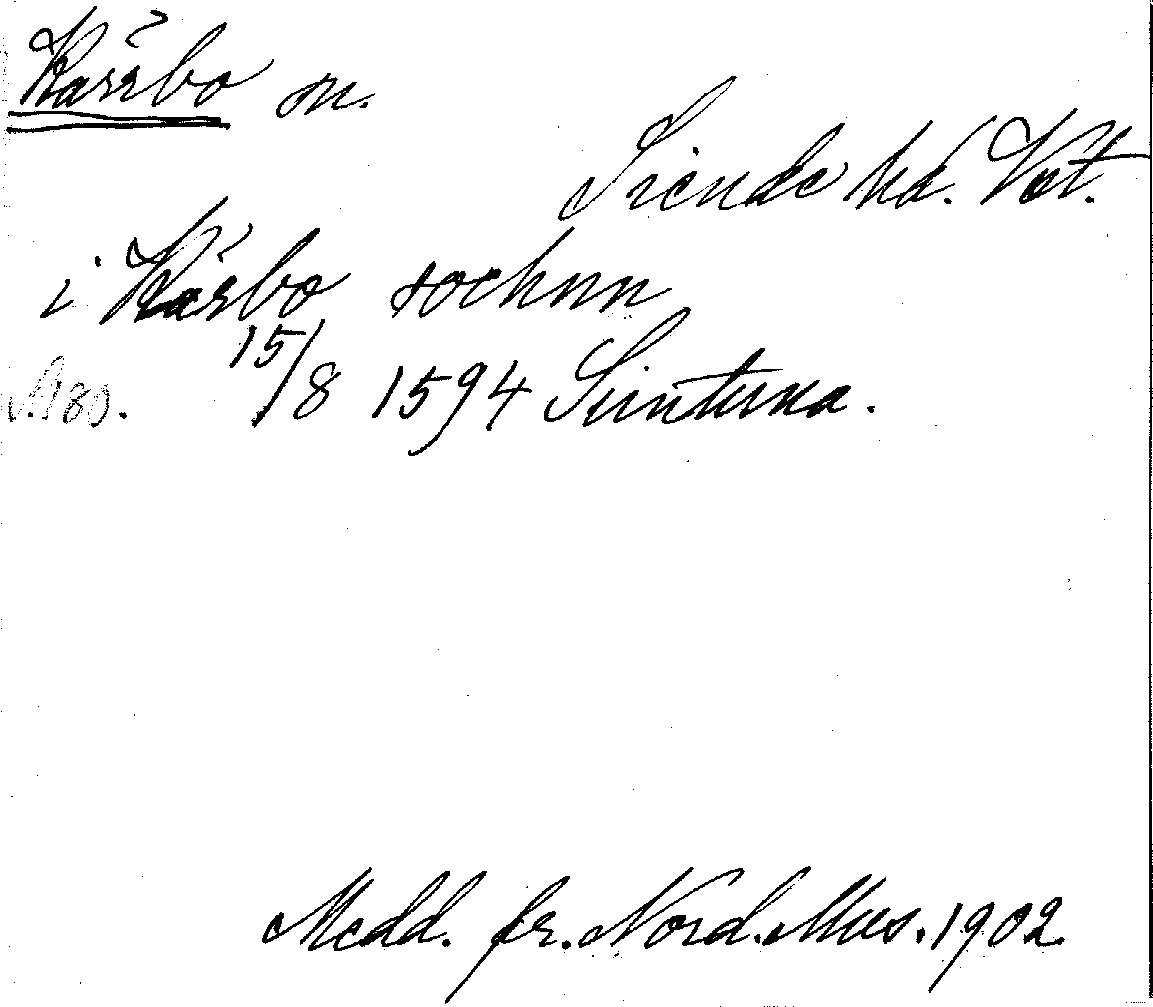 Kärrbo sn.
Siende hd. Vst.
i Kärbo sochnn
s. 180. 15/8 1594 Sundtuna.
Medd. fr. Nord. Mus. 1902